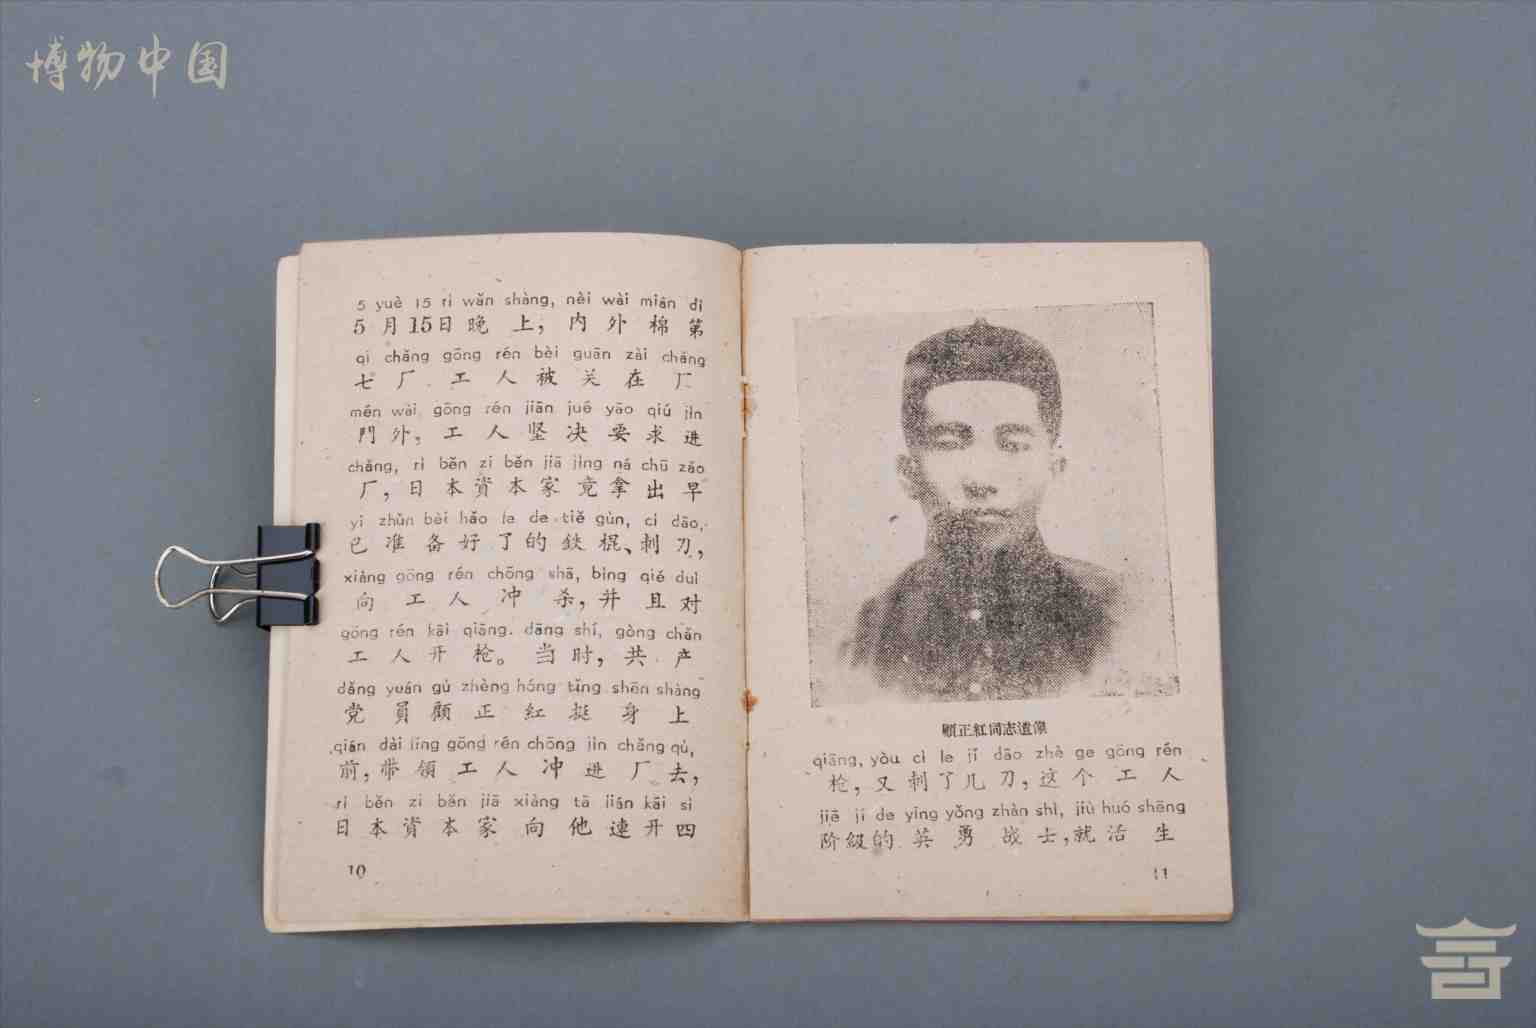 博物中国
5 yuè 15 rì wǎn shàng, nèi wài mián dì
5月15日晚上，内外棉第
qī chǎng gōng rén bèi guān zài chǎng
七厂工人被关在厂
mén wài, gōng rén jiān jué yāo qiú jìn
門外，工人坚决要求进
chǎng, rì běn zī běn jiā jìng ná chū zǎo
厂，日本資本家竟拿出早
yǐ zhǔn bèi hǎo le de tiě gùn, cì dāo,
已准备好了的鉄棍、刺刀，
xiàng gōng rén chōng shā, bìng qiě duì
向工人冲杀，并且对
gōng rén kāi qiāng. dāng shí, gòng chǎn
工人开枪。当时，共产
dǎng yuán gù zhèng hóng tǐng shēn shàng
党員顧正紅挺身上
qián, dài lǐng gōng rén chōng jìn chǎng qù,
前，带領工人冲进厂去，
rì běn zī běn jiā xiàng tā lián kāi sì
日本資本家向他連开四
10
顧正紅同志遺像
qiāng, yòu cì le jǐ dāo zhè ge gōng rén
枪，又刺了几刀，这个工人
jiē jí de yīng yǒng zhàn shì, jiù huó shēng
阶級的英勇战士，就活生
11